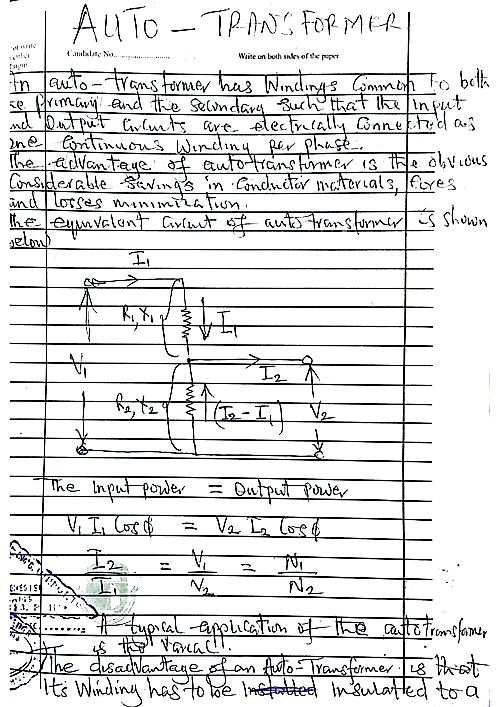 AUTO - TRANSFORMER
Candidate No.
Write on both sides of the paper
An auto-transformer has Windings Common to both
the primary and the Secondary Such that the Input
and Output Circuits are electrically Connected as
one Continuous Winding per phase.
The advantage of auto transformer is the obvious
Considerable Savings in Conductor materials,
and losses minimization.
The equivalent Circuit of auto transformer is shown
below
I1
R1, X1
I1
I2
V1
R2, X2
(I2 - I1)
V2
The Input power = Output power
V1 I1 Cosϕ = V2 I2 Cosϕ
I2/I1 = V1/V2 = N1/N2
A typical application of the auto transformer
is the Variac.
The disadvantage of an Auto-Transformer is that
Its Winding has to be Insulated to a